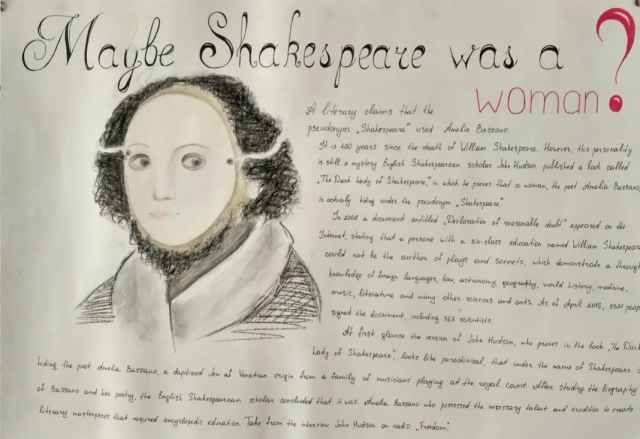 Maybe Shakespeare was a
woman?
A literary claims that the
pseudonym „Shakespeare" used Amelia Bassano.
It is 400 years since the death of William Shakespeare. However, this personality
is still a mystery English Shakespearean scholar John Hudson published a book called
„The Dark Lady of Shakespeare", in which he proves that a woman, the poet Amelia Bassano,
is actually hiding under the pseudonym „Shakespeare"
In a document entitled „Declaration of reasonable doubt" appeared on the
Internet, stating that a persone with a six-class education named William Shakespeare
could not be the author of plays and sonnets, which demonstrate a through
knowledge of foreign languages, law, astronomy, geography, world history, medicine,
music, literature and many other sciences and arts. As of April people
signed the document, including scientists.
At first glance the version of John Hudson, who proves in the book „The Dark
Lady of Shakespeare", looks like paradoxical, that under the name of Shakespeare is
hiding the poet Amelia Bassano, a baptized Jew of Venetian origin from a family of musicians playing at the royal court. After studing the biography
of Bassano and her poetry, the English Shakespearean scholar concluded that it was Amelia Bassano who possessed the necessary talent and erudition to create
literary masterpieces that required encyclopedic education. Take from the interview John Hudson on radio „Freedom"